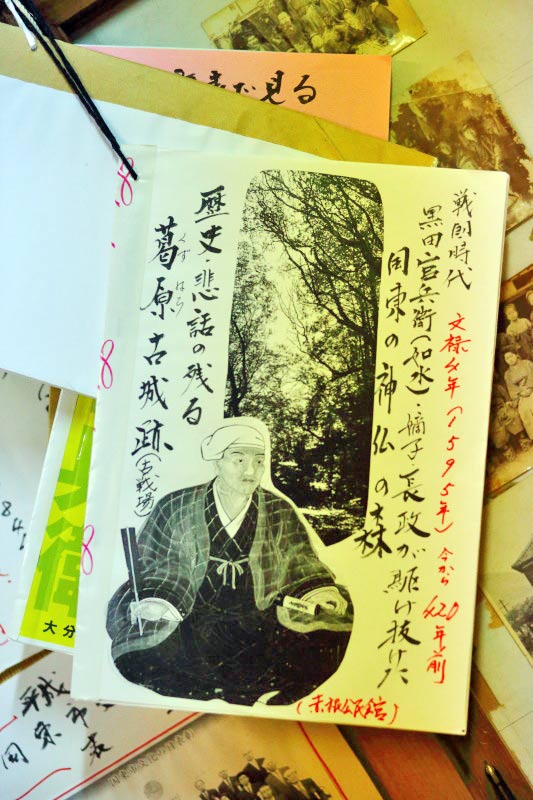 で見る
戦国時代
文禄4年(1595年)今から420年前
黒田官兵衛(如水)・嫡子長政が駆け抜けた
国東の神仏の森
歴史・悲話の残る
葛原古城跡(古戦場)
くず はら
(赤根公民館)
8
8
8
84
大分
平成
国東市
表